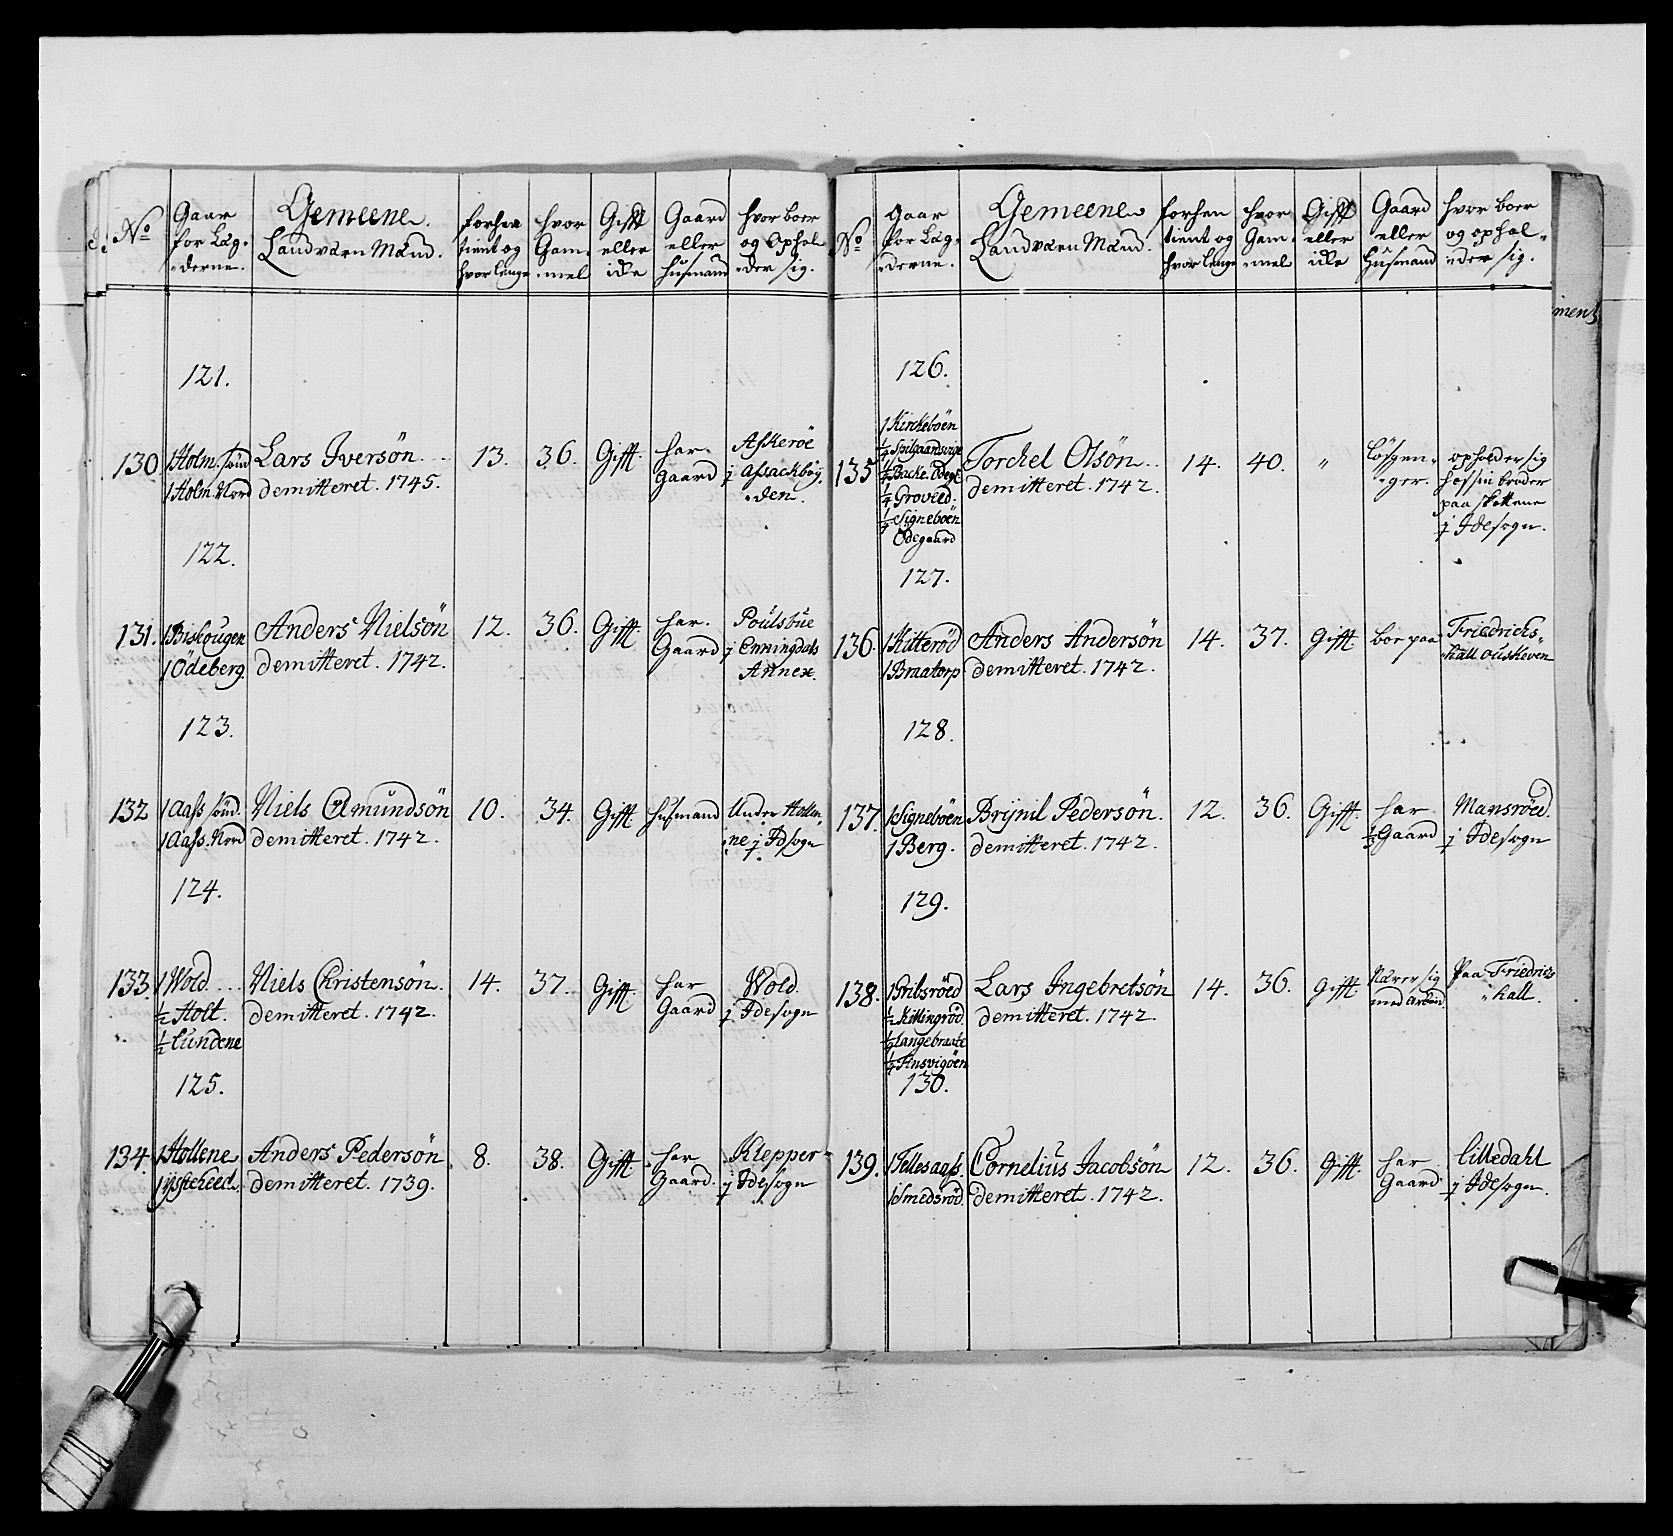 No
Gaar
for Læg-
derne.
Gemeene
Landværn Mænd.
forhen
tient og
hvor længe
hvor
Gam-
mel
Gift
eller
idle
Gaard
eller
Husmand
hvor boer
og ophol-
der sig.
121.
130
1 Holm. Sönd
1 Holm. Nord
Lars Jversön
demitteret. 1745.
13.
36.
Gift
har
Gaard
Askeröe
j Assackböy-
den.
122.
131.
1 Biskougen
1 Ödeberg.
Anders Nielsön
demitteret. 1742.
12.
36.
Gift
har
Gaard
Poulsbüe
j Enningdals
Annex.
123.
132
1 Aass Sönd.
1 Aass. Nord
Niels Amundsön
demitteret. 1742.
10.
34.
Gift
Husmand
Under Hollen-
ne j Idsogn
124.
133.
1 Wold.
½ Holt.
½ Lundene
Niels Christensön.
demitteret. 1742.
14.
37.
Gift
har
Gaard
Wold.
j Idesogn
125.
134.
1 Hollene
1
Anders Pedersön
demitteret. 1739.
8.
38.
Gift
har
Gaard.
Klepper
j Idesogn
No
Gaar
for Læg-
derne.
Gemeene
Landværn Mænd.
forhen
tient og
hvor længe
hvor
Gam-
mel
Gift
eller
idle
Gaard
eller
Husmand
hvor boer
og ophol-
der sig.
ment
126.
135
1 Kirckeböen
¼
¼ Backe. Ödeg.
¼ Groveed.
¼ Signeböen
Ödegaard
Torckel Olsön
demitteret. 1742.
14.
40.
"
Løsgen-
ger.
opholder sig
hos sin broder
paa Skottene
j Idesogn.
127.
136.
1 Kitteröd
1 Braatorp
Anders Andersön
demitteret. 1742.
14.
37.
Gift
boe paa
Friedrichs-
hall ouskeven
128.
137.
1 Signeböen
1 Berg.
Brÿnil Pedersön.
demitteret. 1742.
12.
36.
Gift.
har
½ Gaard
Mansröed.
j Idesogn
129.
138.
1 Pribsröed
½ Kittingröd
¼ Langebraate
¼
Lars Ingebretsön
demitteret. 1742.
14.
36.
Gift
Nærer sig
med arbeid
Paa Friedrichs
hall.
130.
139.
1 Tellesaass
1 Smedsröd.
Cornelius Jacobsön
demitteret. 1742.
12.
36.
Gift.
har
Gaard
Lilledahl
j Idesogn.